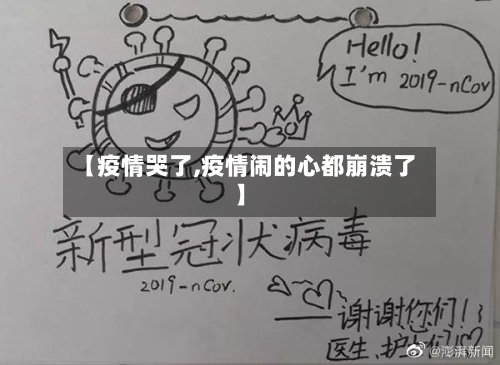 Hello!
I'm 2019-nCov
【疫情哭了,疫情闹的心都崩溃了
】
新型冠状病毒
2019-nCov.
——谢谢您们!
医生、护士们
@澎湃新闻